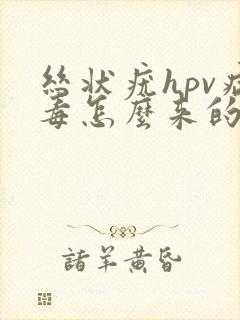 丝状疣hpv病
毒怎麼来的
諸羊黄昏